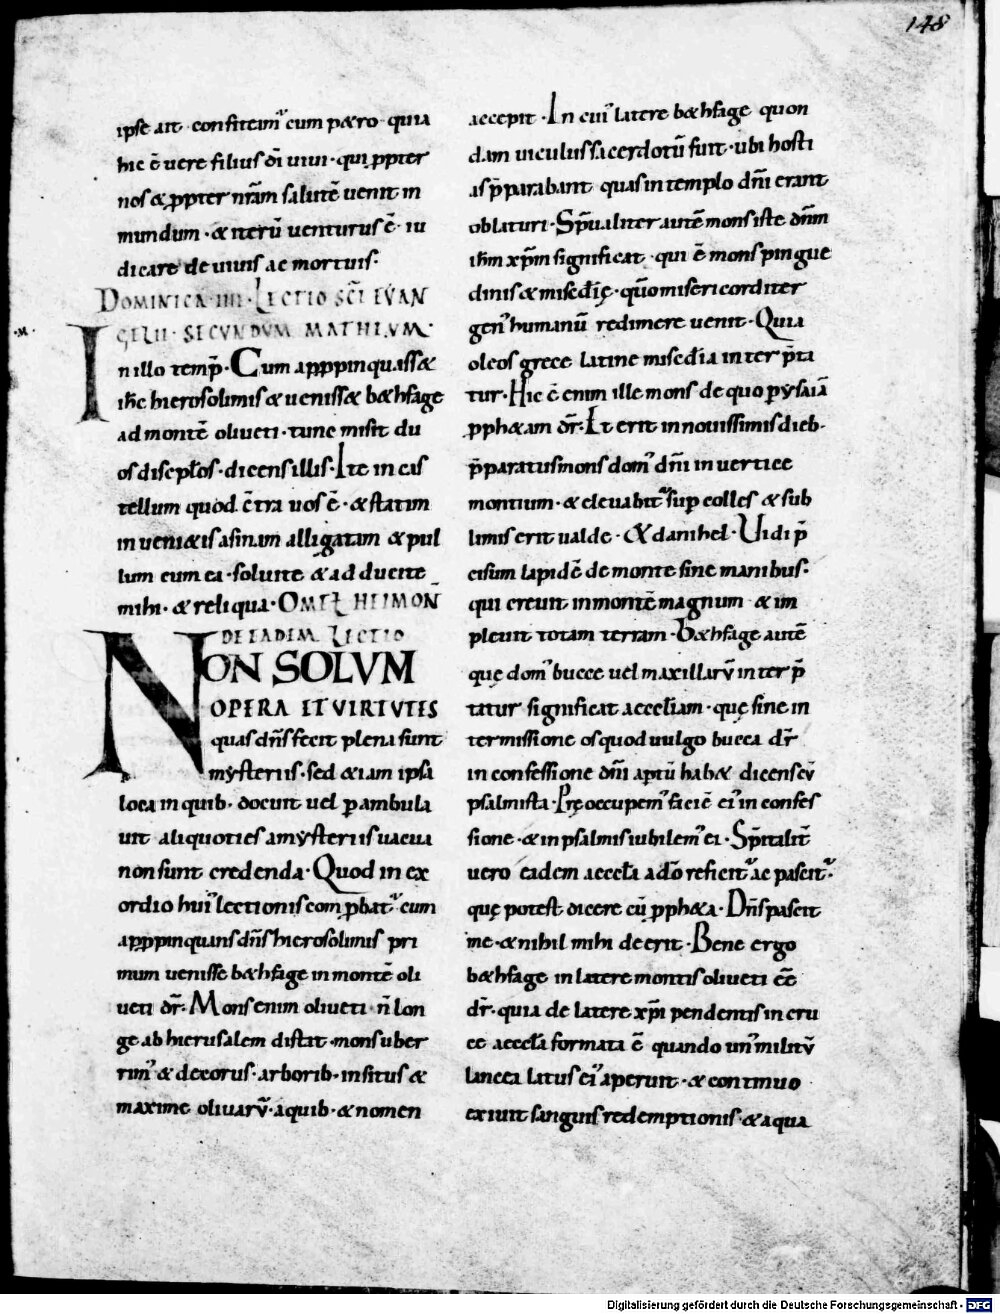 148
ipse ait · confitem᷒ cum petro · quia
hic ē vere filius di̅ vivi · qui ꝓpter
nos & ꝓpter nr̅am salutē venit in
mundum · & iterū venturus ē · iu
dicare de vivis ac mortuis:
DOMINICA · IIII · LECTIO SC̅I EVAN
GELII · SECUNDVM MATHEVM ·
·M·
In illo temp̅r · Cum apꝓpinquass&
ih̅c hierosolimis & veniss& b&hfage
ad montē oliveti · tunc misit du
os discipl̅os · dicens illis · Ite in cas
tellum quod c̅tra vos ē · & statim
inveni&is asinam alligatam & pul
lum cum ea · solvite & adducite
mihi · & reliqua · OMEL HEIMON̅
DE EADEM LECTIO
NON SOLVM
OPERA ET VIRTVTES
quas dn̅s fecit plena sunt
mysteriis · sed &iam ipsa
loca in quib· docuit vel ꝑambula
vit aliquoties a mysteriis vacua
non sunt credenda · Quod in ex
ordio hui᷒ lectionis comꝓbat᷒ cum
apꝓpinquans dn̅s hierosolimis pri
mum venisse b&hfage in montē oli
veti dr̅ · Mons enim oliveti n̅ lon
ge ab hierusalem distat · mons uber
rim᷒ & decorus · arborib· insitus &
maxime olivarū · a quib· & nomen
accepit · In cui᷒ latere b&hfage quon
dam viculus sacerdotū fuit · ubi hosti
as p̅parabant quas in templo dn̅i erant
oblaturi · Sp̅ualiter autē mons iste dn̅m
ih̅m xp̅m significat · qui ē mons pingue
dinis & miscd̅ię · quō misericorditer
gen᷒ humanū redimere venit · Quia
oleos grece latine miscd̅ia interp̅ta
tur · Hic ē enim ille mons de quo p ysaiā
ꝓph&am dr̅ · Et erit in novissimis dieb·
p̅paratus mons dom᷒ dn̅i in vertice
montium · & elevabit᷒ sup colles & sub
limis erit valde · Et danihel · Vidi p̅
cisum lapidē de monte sine manibus:
qui crevit in montē magnum & im
plevit totam terram · B&hfage autē
quę dom᷒ bucce vel maxillarū interp̅
tatur significat accel̅iam · quę sine in
termissione os quod vulgo bucca dr̅
in confessione dn̅i aptū hab& dicens cū
psalmista · Pręoccupem᷒ faciē ei᷒ in confes
sione · & in psalmis iubilem᷒ ei · Sp̅italit̅
vero eadem accel̅a a dō reficit᷒ ac pascit᷒ ·
quę potest dicere cū ꝓph&a · Dn̅s pascit
me · & nihil mihi deerit · Bene ergo
b&hfage in latere montis oliveti e̅e̅
dr̅ · quia de latere xp̅i pendentis in cru
ce accel̅a formata ē quando un᷒ militū
lancea latus ei᷒ aperuit · & continuo
exivit sanguis redemptionis & aqua
Digitalisierung gefördert durch die Deutsche Forschungsgemeinschaft - DFG